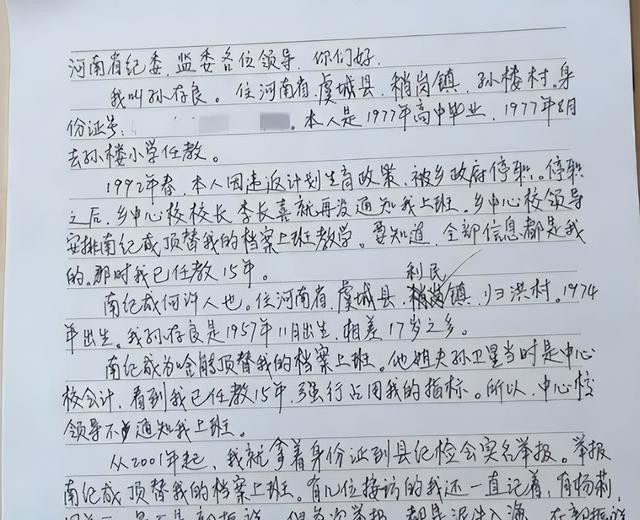 河南省纪委,监委各位领导,你们好,
我叫孙存良。住河南省,虞城县,稍岗镇,孙楼村。身
份证号: 。本人是1977年高中毕业,1977年8月
去孙楼小学任教。
1992年春,本人因违返计划生育政策,被乡政府停职。停职
之后,乡中心校校长李长喜就再没通知我上班。乡中心校领导
安排南纪成顶替我的档案上班教学。要知道,全部信息都是我
的,那时我已任教15年。
利民
南纪成何许人也。住河南省,虞城县,稍岗镇,归洪村。1974
年出生。我孙存良是1957年11月出生,相差17岁之多。
南纪成为啥能顶替我的档案上班。他姐夫孙卫星当时是中心
校会计,看到我已任教15年,强行占用我的指标。所以,中心校
领导不通知我上班。
从2001年起,我就拿着身份证到县纪检会实名举报。举报
南纪成顶替我的档案上班。有几位接访的我还一直记着,有杨莉,
但每次举报,都是泥牛入海